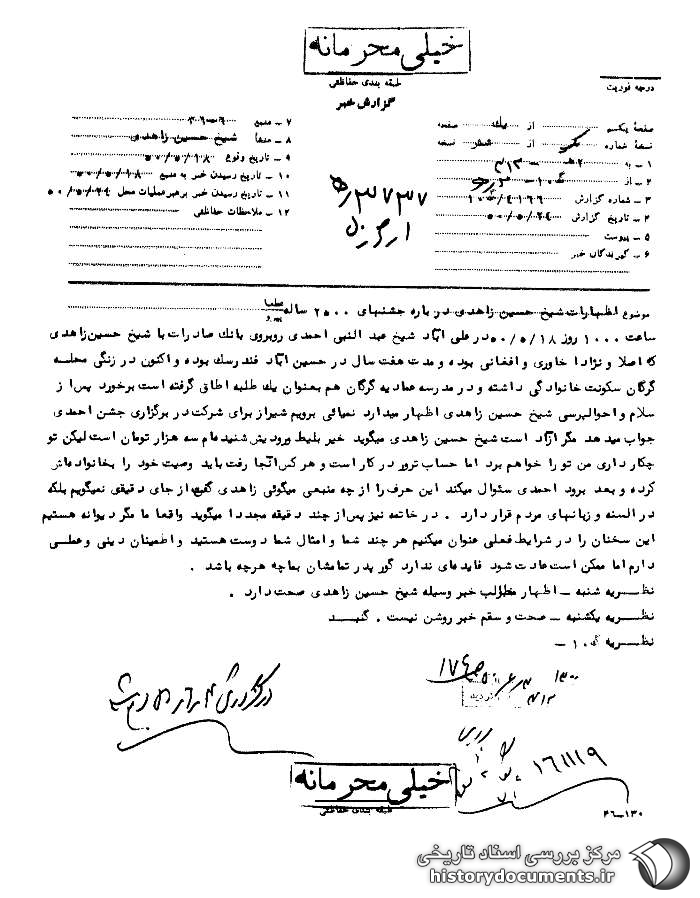 خیلی محرمانه
طبقه بندی حفاظتی
گزارش خبر
درجه فوریت
صفحهٔ یکم از یک صفحه
نسخهٔ شماره یک از شش نسخه
۱ – به ۳۱۲
۲ – از
۳ – شماره گزارش
۴ – تاریخ گزارش ۵۰/۵/۲۴
۵ – پیوست
۶ – گیرندگان خبر
۷ – منبع
۸ – منشأ شیخ حسین زاهدی
۹ – تاریخ وقوع ۵۰/۵/۱۸
۱۰ – تاریخ رسیدن خبر به منبع ۵۰/۵/۱۸
۱۱ – تاریخ رسیدن خبر برهبر عملیات محل ۵۰/۵/۲۴
۱۲ – ملاحظات حفاظتی
موضوع اظهارات شیخ حسین زاهدی درباره جشنهای ۲۵۰۰ ساله
ساعت ۱۰۰۰ روز ۵۰/۵/۱۸ در علی آباد شیخ عبد النبی احمدی روبروی بانک صادرات با شیخ حسین زاهدی
که اصلا و نژادا خاوری و افغانی بوده و مدت هفت سال در حسین آباد فندرسک بوده و اکنون در زنگی محله
گرگان سکونت خانوادگی داشته و در مدرسه عمادیه گرگان هم بعنوان یک طلبه اطاق گرفته است برخورد پس از
سلام و احوالپرسی شیخ حسین زاهدی اظهار میدارد نمیائی برویم شیراز برای شرکت در برگزاری جشن احمدی
جواب میدهد مگر آزاد است شیخ حسین زاهدی میگوید خیر بلیط ورودیش شنیده‌ام سه هزار تومان است لیکن تو
چکار داری من تو را خواهم برد اما حساب ترور در کار است و هر کس آنجا رفت باید وصیت خود را بخانواده‌اش
کرده و بعد برود احمدی سئوال میکند این حرف را از چه منبعی میگوئی زاهدی گفت از جای دقیقی نمیگویم بلکه
در السنه و زبانهای مردم قرار دارد . در خاتمه نیز پس از چند دقیقه مجددا میگوید واقعا ما مگر دیوانه هستیم
این سخنان را در شرایط فعلی عنوان میکنیم هر چند شما و امثال شما دوست هستید و اطمینان دینی و عملی
دارم اما ممکن است عادت شود فایده‌ای ندارد گور پدر تمامشان بما چه هرچه باشد .
نظریه شنبه – اظهار مطالب خبر وسیله شیخ حسین زاهدی صحت دارد .
نظریه یکشنبه – صحت و سقم خبر روشن نیست . گنبد
نظریه ک ۱۰ –
۱۶۱۱۱۹
خیلی محرمانه
طبقه بندی حفاظتی
۴۶-۱۳۰
مرکز بررسی اسناد تاریخی
historydocuments.ir